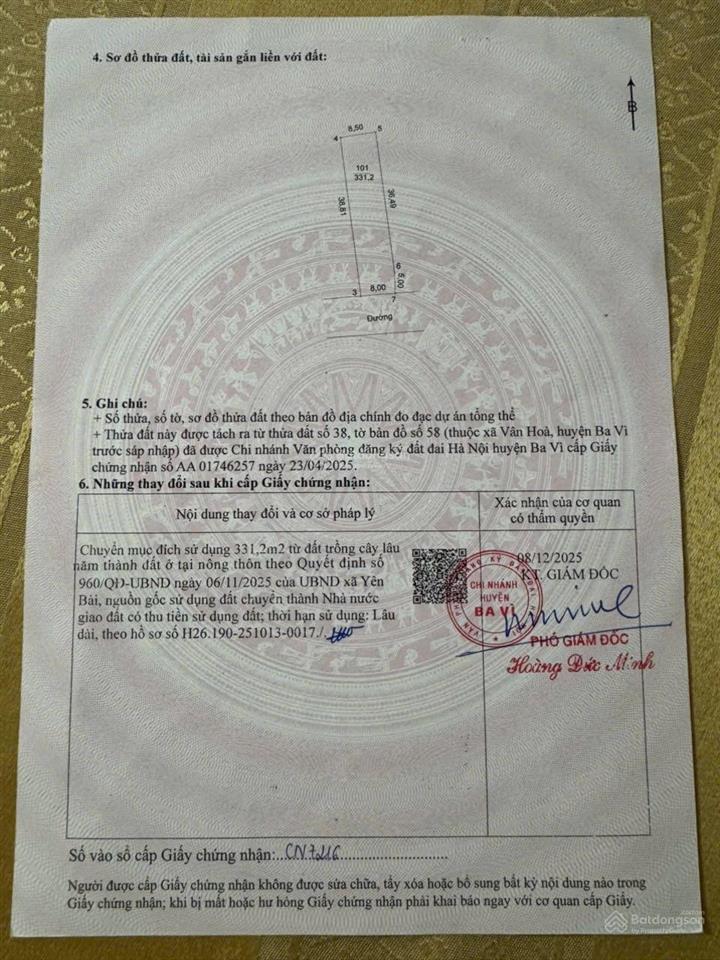 4. Sơ đồ thửa đất, tài sản gắn liền với đất:
B
8,50
4
5
101
331,2
38,81
36,49
6
5,00
3
8,00
7
Đường
5. Ghi chú:
+ Số thửa, số tờ, sơ đồ thửa đất theo bản đồ địa chính đo đạc dự án tổng thể
+ Thửa đất này được tách ra từ thửa đất số 38, tờ bản đồ số 58 (thuộc xã Vân Hoà, huyện Ba Vì
trước sáp nhập) đã được Chi nhánh Văn phòng đăng ký đất đai Hà Nội huyện Ba Vì cấp Giấy
chứng nhận số AA 01746257 ngày 23/04/2025.
6. Những thay đổi sau khi cấp Giấy chứng nhận:
Nội dung thay đổi và cơ sở pháp lý
Xác nhận của cơ quan
có thẩm quyền
Chuyển mục đích sử dụng 331,2m2 từ đất trồng cây lâu
năm thành đất ở tại nông thôn theo Quyết định số
960/QĐ-UBND ngày 06/11/2025 của UBND xã Yên
Bài, nguồn gốc sử dụng đất chuyển thành Nhà nước
giao đất có thu tiền sử dụng đất; thời hạn sử dụng: Lâu
dài, theo hồ sơ số H26.190-251013-0017./.
08/12/2025
KT. GIÁM ĐỐC
CHI NHÁNH
HUYỆN
BA VÌ
PHÓ GIÁM ĐỐC
Hoàng Đức Minh
Số vào sổ cấp Giấy chứng nhận:..CN7216..........................
Người được cấp Giấy chứng nhận không được sửa chữa, tẩy xóa hoặc bổ sung bất kỳ nội dung nào trong
Giấy chứng nhận; khi bị mất hoặc hư hỏng Giấy chứng nhận phải khai báo ngay với cơ quan cấp Giấy.
Batdongsan
by PropertyGuru